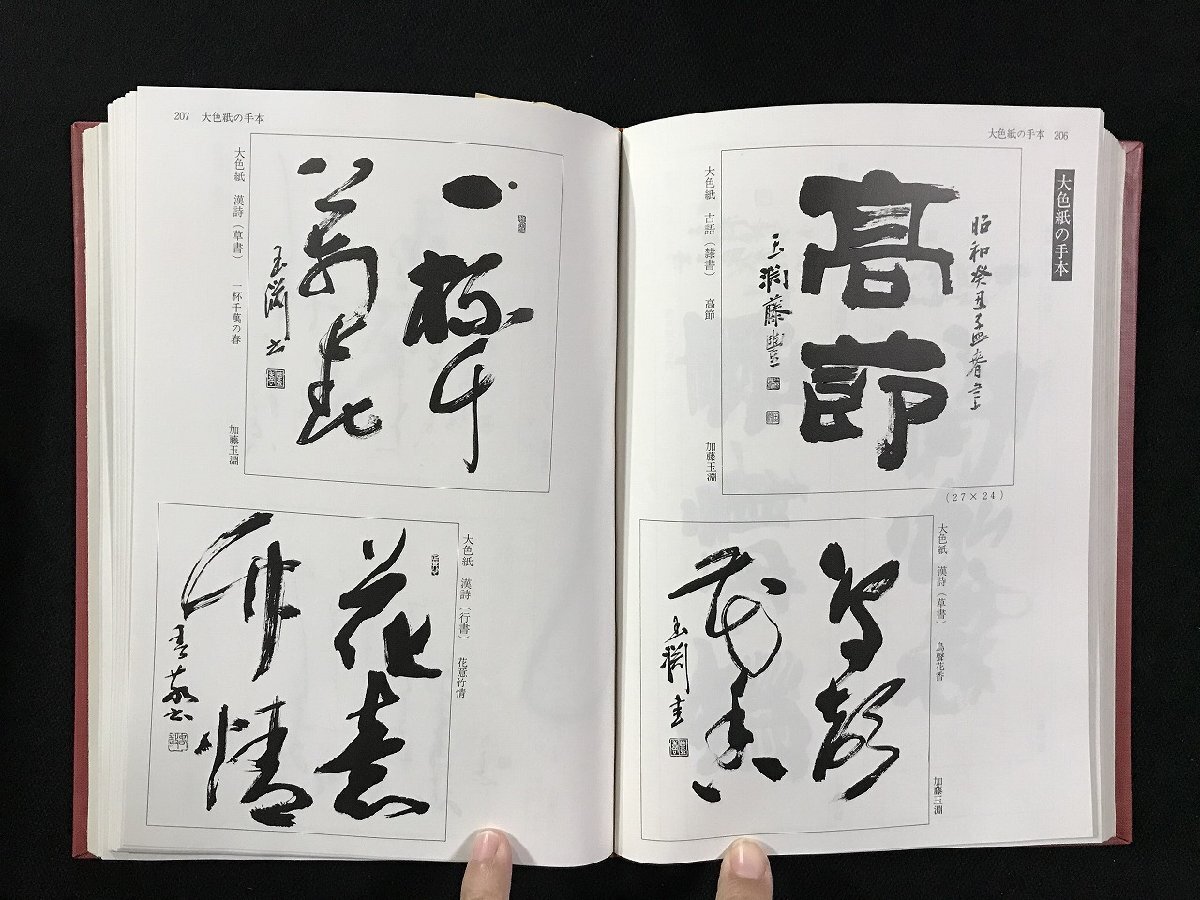 大色紙の手本 206
大色紙の手本
昭和癸丑孟春
高節
玉淵藤豊
(27×24)
大色紙 古語（隷書） 高節 加藤玉淵
大色紙 漢詩（草書） 鳥聲花香 加藤玉淵
鳥聲
花香
玉淵書
207 大色紙の手本
一杯千
萬春
玉淵書
大色紙 漢詩（草書） 一杯千萬の春 加藤玉淵
大色紙 漢詩（行書） 花意竹情
花意
竹情